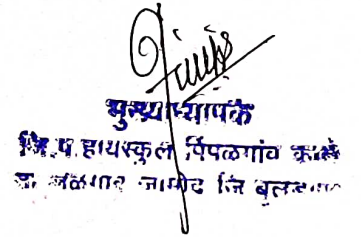 मुख्याध्यापक
जि.प.हायस्कुल पिंपळगाव काळे
जळगाव जामोद जि बुलडाणा